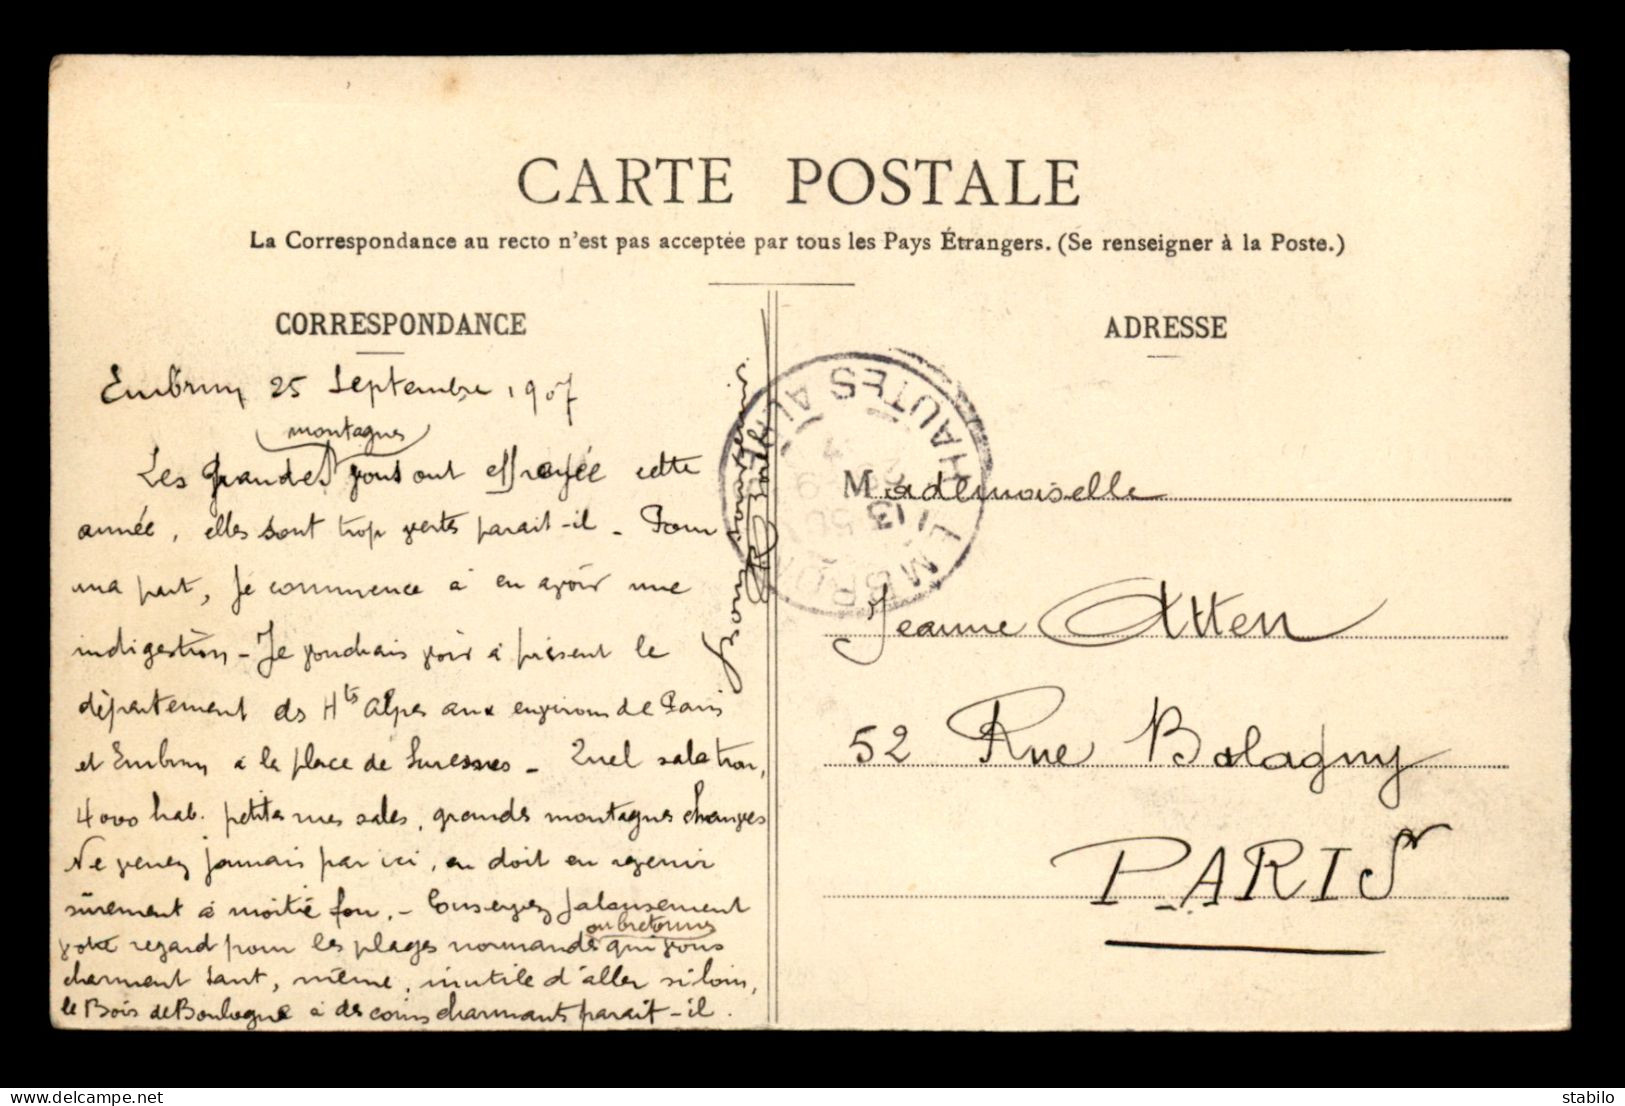 CARTE POSTALE
La Correspondance au recto n'est pas acceptée par tous les Pays Étrangers. (Se renseigner à la Poste.)
CORRESPONDANCE
Embrun 25 Septembre 1907
montagnes
Les grandes vous ont effrayée cette
année, elles sont trop vertes parait-il - Pour
ma part, je commence à en avoir une
indigestion - Je voudrais voir à présent le
département des Htes Alpes aux environs de Paris
et Embrun à la place de Suresnes -
4000 hab. petites rues sales, grandes montagnes
Ne venez jamais par ici, on doit en revenir
sûrement à moitié fou. - Conservez jalousement
ou bretonnes
votre regard pour les plages normandes qui vous
charment tant, même, inutile d'aller si loin,
le Bois de Boulogne a des coins charmants parait-il.
Bon souvenir
ADRESSE
Mademoiselle
Jeanne Atten
52 Rue Balagny
PARIS
EMBRUN
HAUTES ALPES
delcampe.net
stabilo